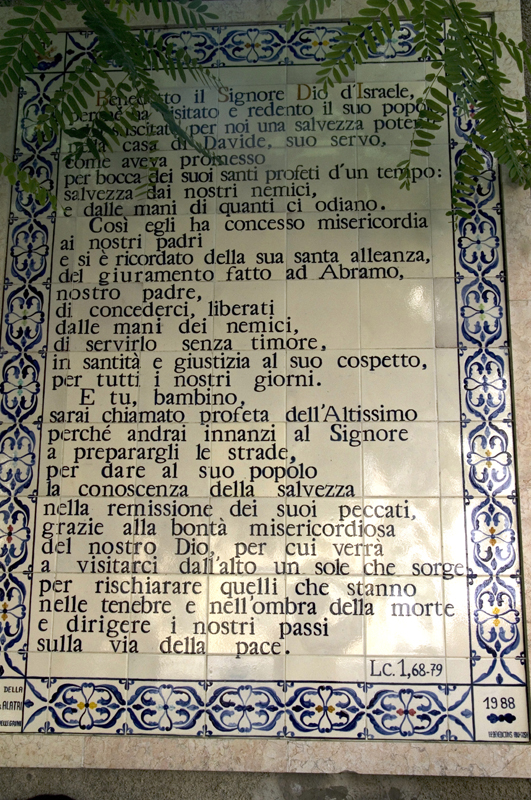 Benedetto il Signore Dio d'Israele,
perché ha visitato e redento il suo popolo
suscitato per noi una salvezza potente
nella casa di Davide, suo servo,
come aveva promesso
per bocca dei suoi santi profeti d'un tempo:
salvezza dai nostri nemici,
e dalle mani di quanti ci odiano.
Così egli ha concesso misericordia
ai nostri padri
e si è ricordato della sua santa alleanza,
del giuramento fatto ad Abramo,
nostro padre,
di concederci, liberati
dalle mani dei nemici,
di servirlo senza timore,
in santità e giustizia al suo cospetto,
per tutti i nostri giorni.
E tu, bambino,
sarai chiamato profeta dell'Altissimo
perché andrai innanzi al Signore
a preparargli le strade,
per dare al suo popolo
la conoscenza della salvezza
nella remissione dei suoi peccati,
grazie alla bontà misericordiosa
del nostro Dio, per cui verrà
a visitarci dall'alto un sole che sorge
per rischiarare quelli che stanno
nelle tenebre e nell'ombra della morte
e dirigere i nostri passi
sulla via della pace.
Lc. 1,68-79
DELLA
ALATRI
1988